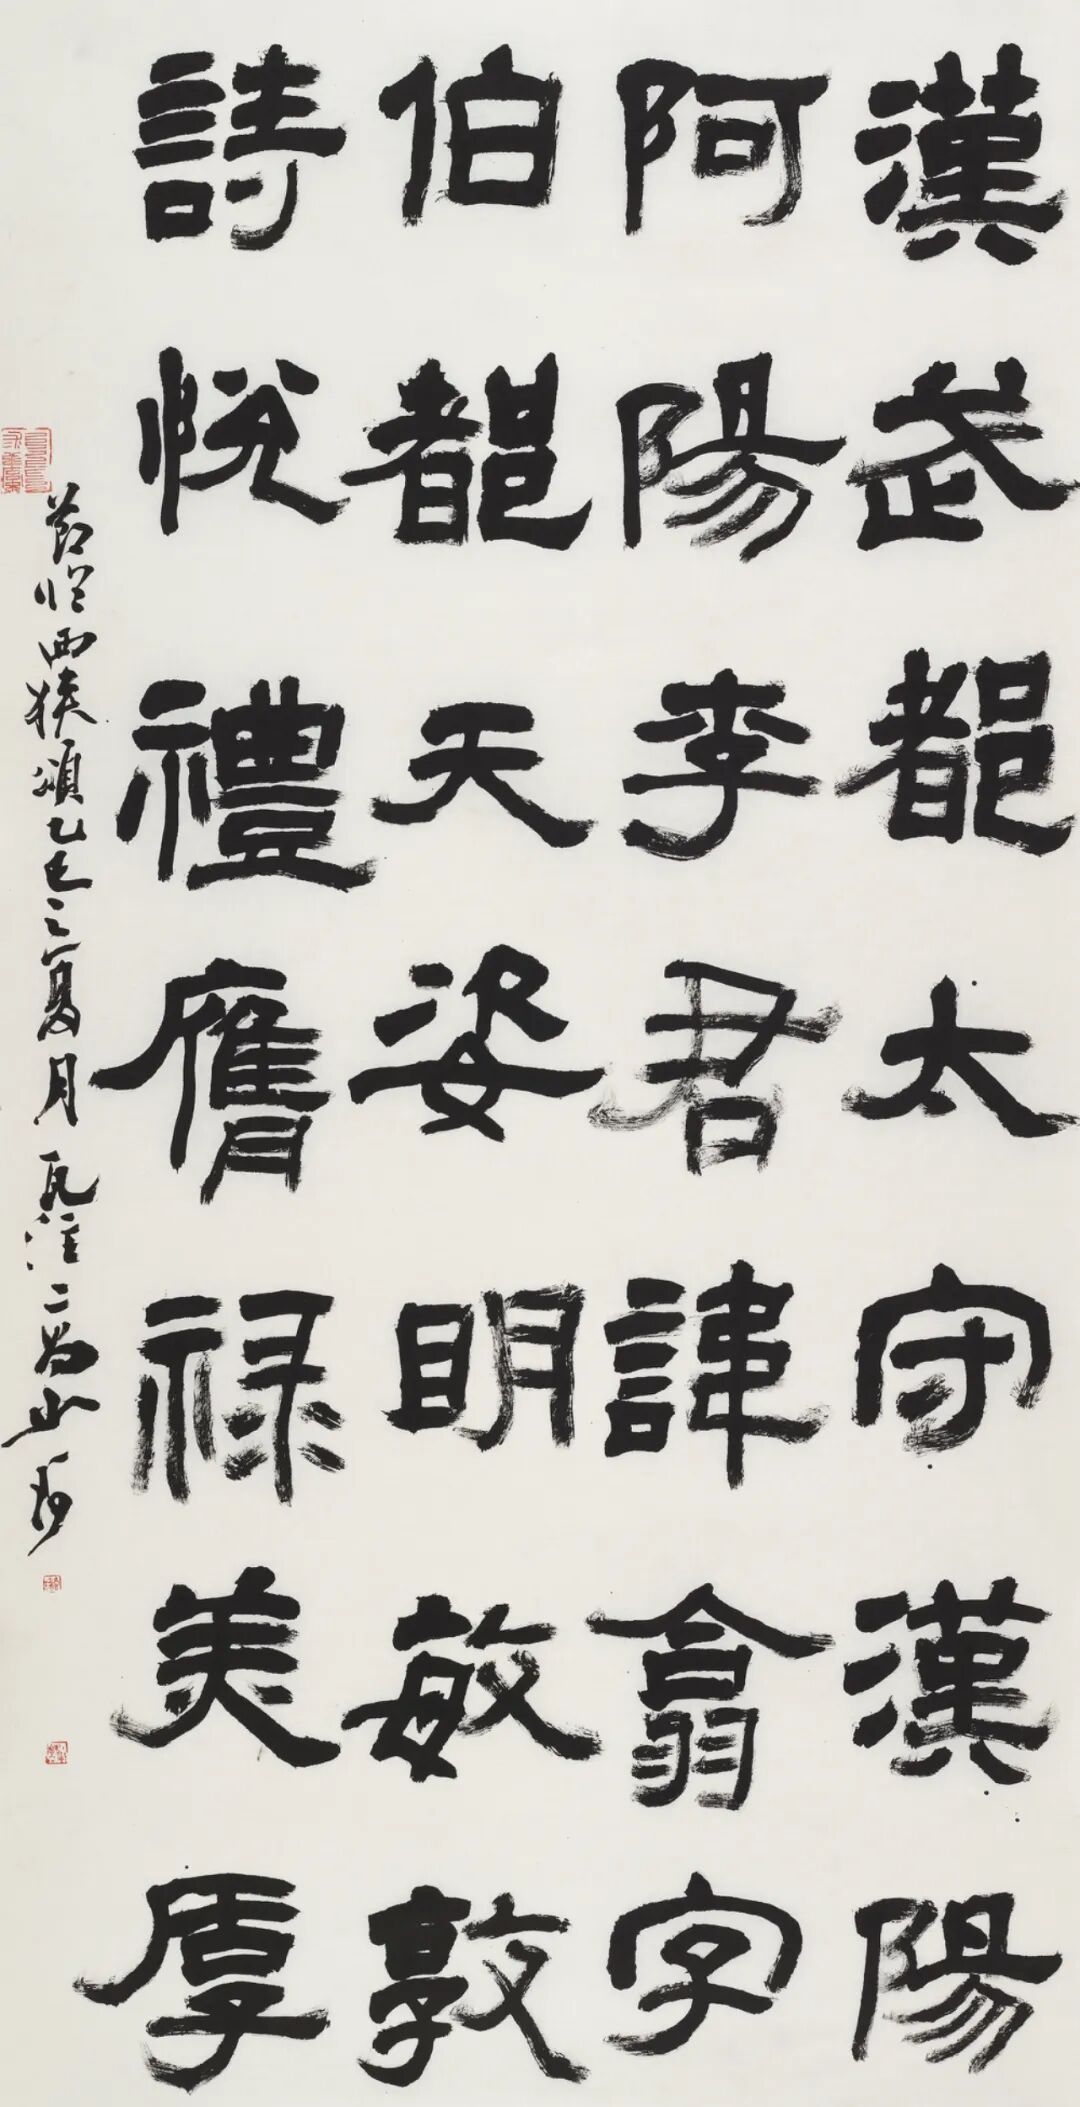 漢武都太守漢陽
阿陽李君諱翕字
伯都天姿明敏敦
詩悅禮膺禄美厚
節臨西狹頌乙巳之夏月